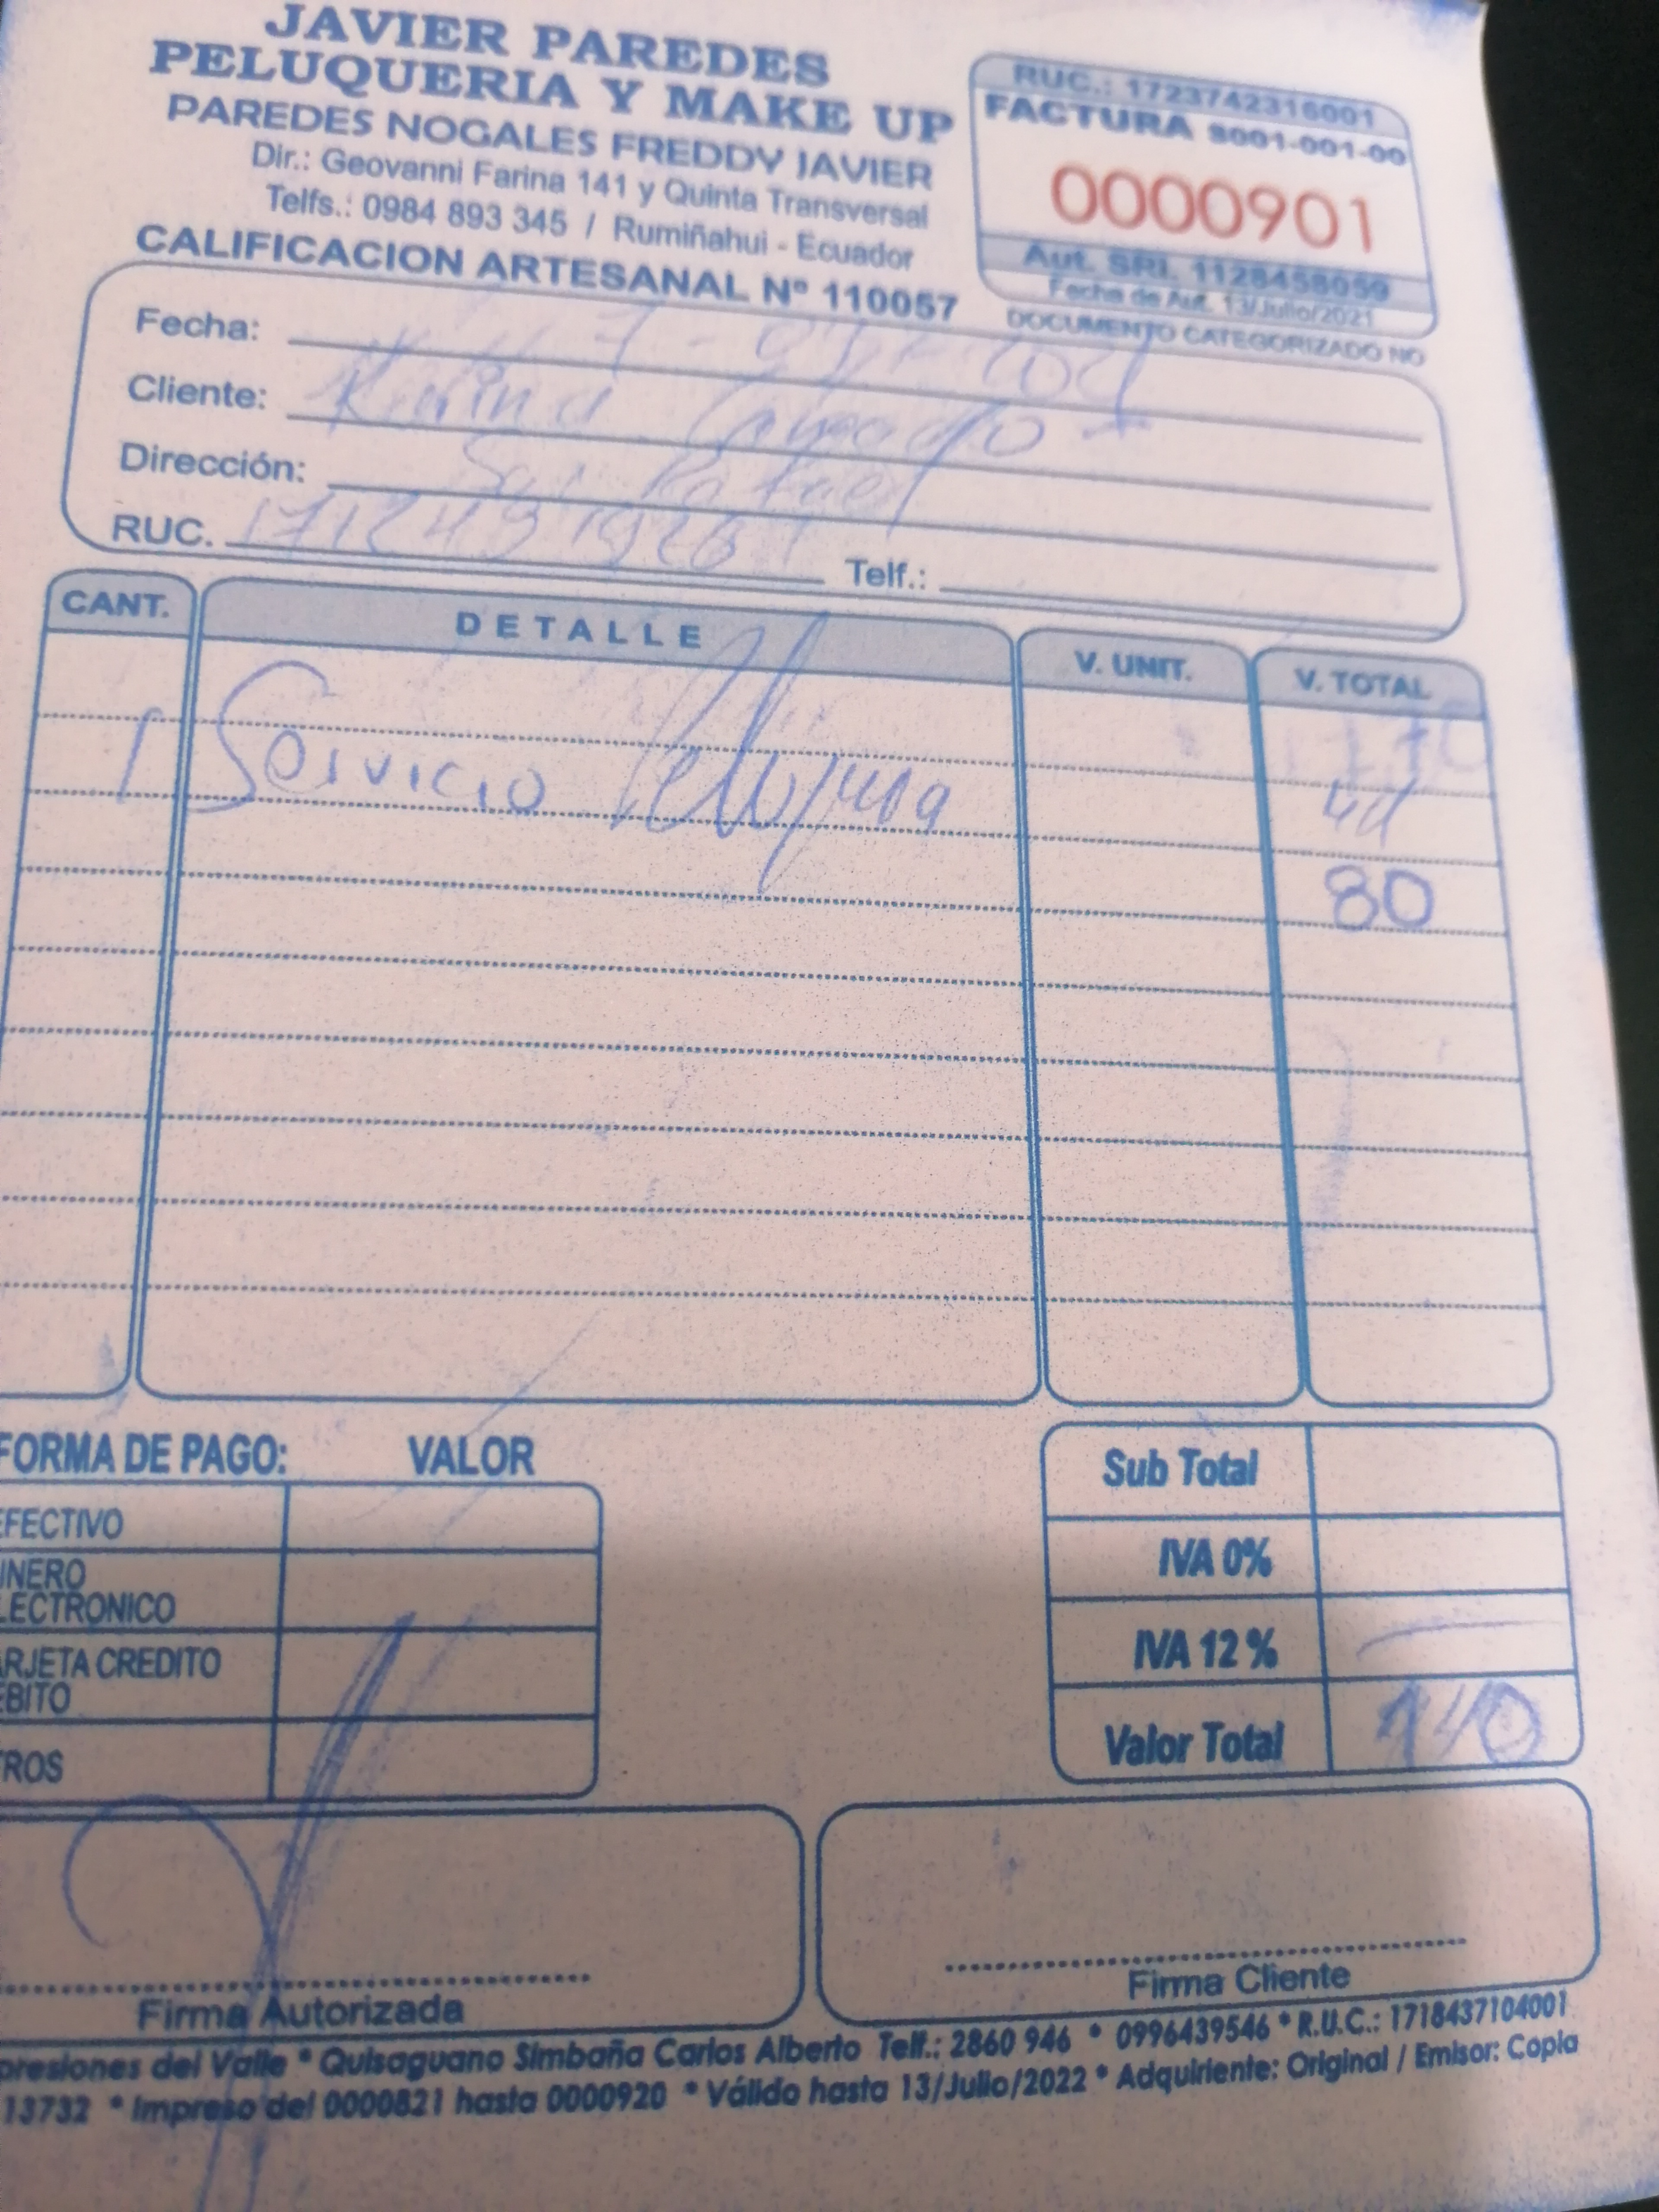 JAVIER PAREDES
PELUQUERIA Y MAKE UP
PAREDES NOGALES FREDDY JAVIER
Dir.: Geovanni Farina 141 y Quinta Transversal
Telfs.: 0984 893 345 / Rumiñahui - Ecuador
CALIFICACION ARTESANAL Nº 110057
RUC.: 1723742316001
FACTURA S001-001-00
0000901
Aut. SRI. 1128458059
Fecha de Aut. 13/Julio/2021
DOCUMENTO CATEGORIZADO NO
Fecha:
Cliente: Karina
Dirección: San Rafael
RUC.
Telf.:
CANT. DETALLE V. UNIT. V. TOTAL
1 Servicio
80
FORMA DE PAGO: VALOR
EFECTIVO
INERO
LECTRONICO
ARJETA CREDITO
EBITO
TROS
Sub Total
IVA 0%
IVA 12 %
Valor Total 140
Firma Autorizada
Firma Cliente
presiones del Valle * Quisaguano Simbaña Carlos Alberto Telf.: 2860 946 * 0996439546 * R.U.C.: 1718437104001
13732 * Impreso del 0000821 hasta 0000920 * Válido hasta 13/Julio/2022 * Adquiriente: Original / Emisor: Copia